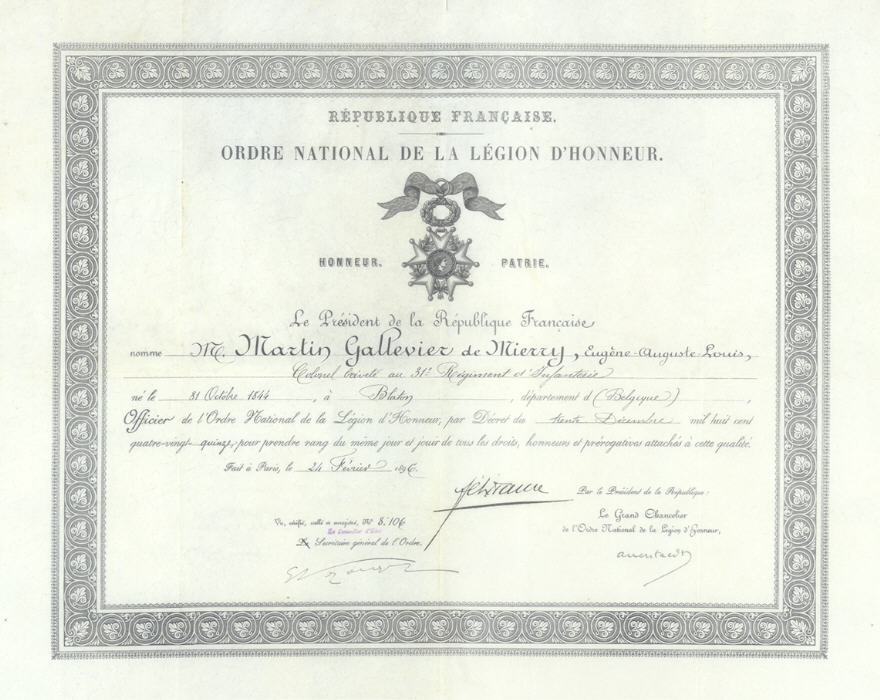 RÉPUBLIQUE FRANÇAISE.
ORDRE NATIONAL DE LA LÉGION D'HONNEUR.
HONNEUR. PATRIE.
Le Président de la République Française
nomme M. Martin Gallevier de Mierry, Eugène-Auguste-Louis,
Colonel breveté au 31e Régiment d'Infanterie
né le 31 Octobre 1844, à , département d (Belgique),
Officier de l'Ordre National de la Légion d'Honneur, par Décret du trente Décembre mil huit cent
quatre-vingt quinze, pour prendre rang du même jour et jouir de tous les droits, honneurs et prérogatives attachés à cette qualité.
Fait à Paris, le 24 Février 1896
Par le Président de la République:
Le Grand Chancelier
de l'Ordre National de la Légion d'Honneur,
Vu, vérifié, scellé et enregistré, No 5.106
Le Secrétaire général de l'Ordre.